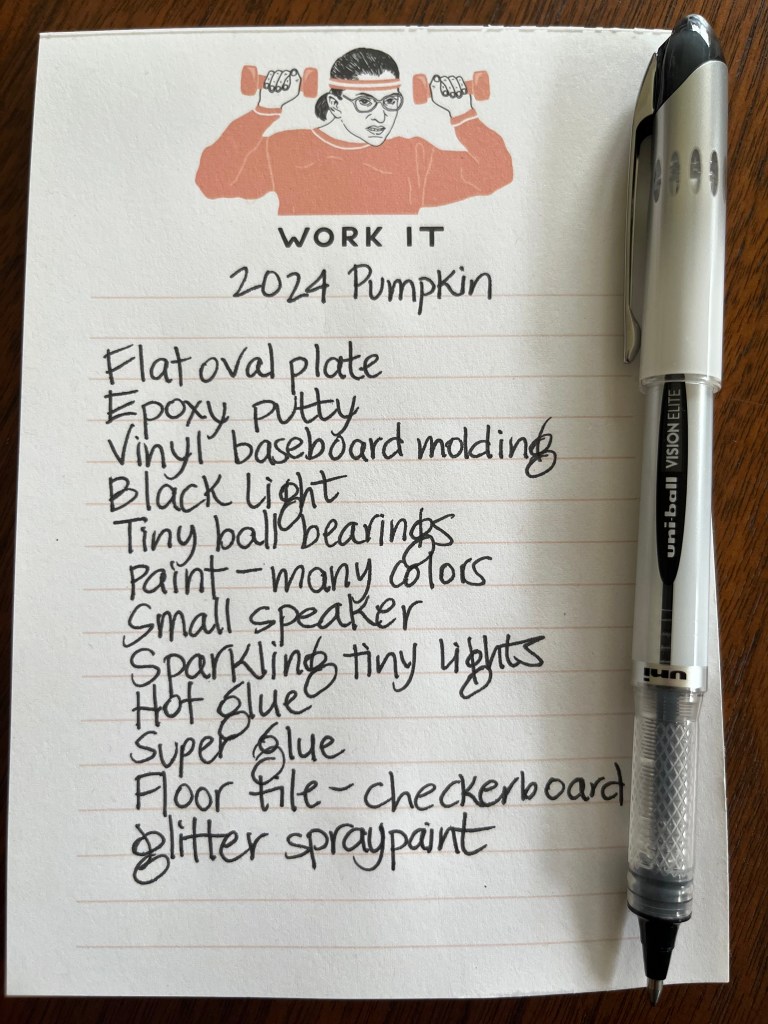 WORK IT
2024 Pumpkin
Flat oval plate
Epoxy putty
Vinyl baseboard molding
Black light
Tiny ball bearings
paint - many colors
Small speaker
Sparkling tiny lights
Hot glue
Super glue
Floor tile - checkerboard
glitter spraypaint
uni-ball VISION ELITE
uni